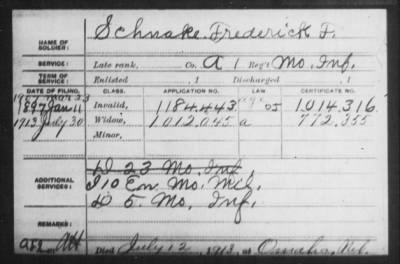 NAME OF SOLDIER: Schnake, Frederick F.
SERVICE: Late rank, Co. A 1 Reg't Mo. Inf.
TERM OF SERVICE: Enlisted , 1 Discharged , 1
DATE OF FILING. CLASS. APPLICATION NO. LAW. CERTIFICATE NO.
1907 Mar 23
1897 Jan 11 Invalid, 1184443 1,014,316
1913 July 30 Widow, 1,012,045 a 772,355
Minor,
D 23 Mo. Inf.
ADDITIONAL SERVICES: I 10 Mo. Mil.
D 5 Mo. Inf.
REMARKS:
Died July 12, 1913, at Omaha, Neb.